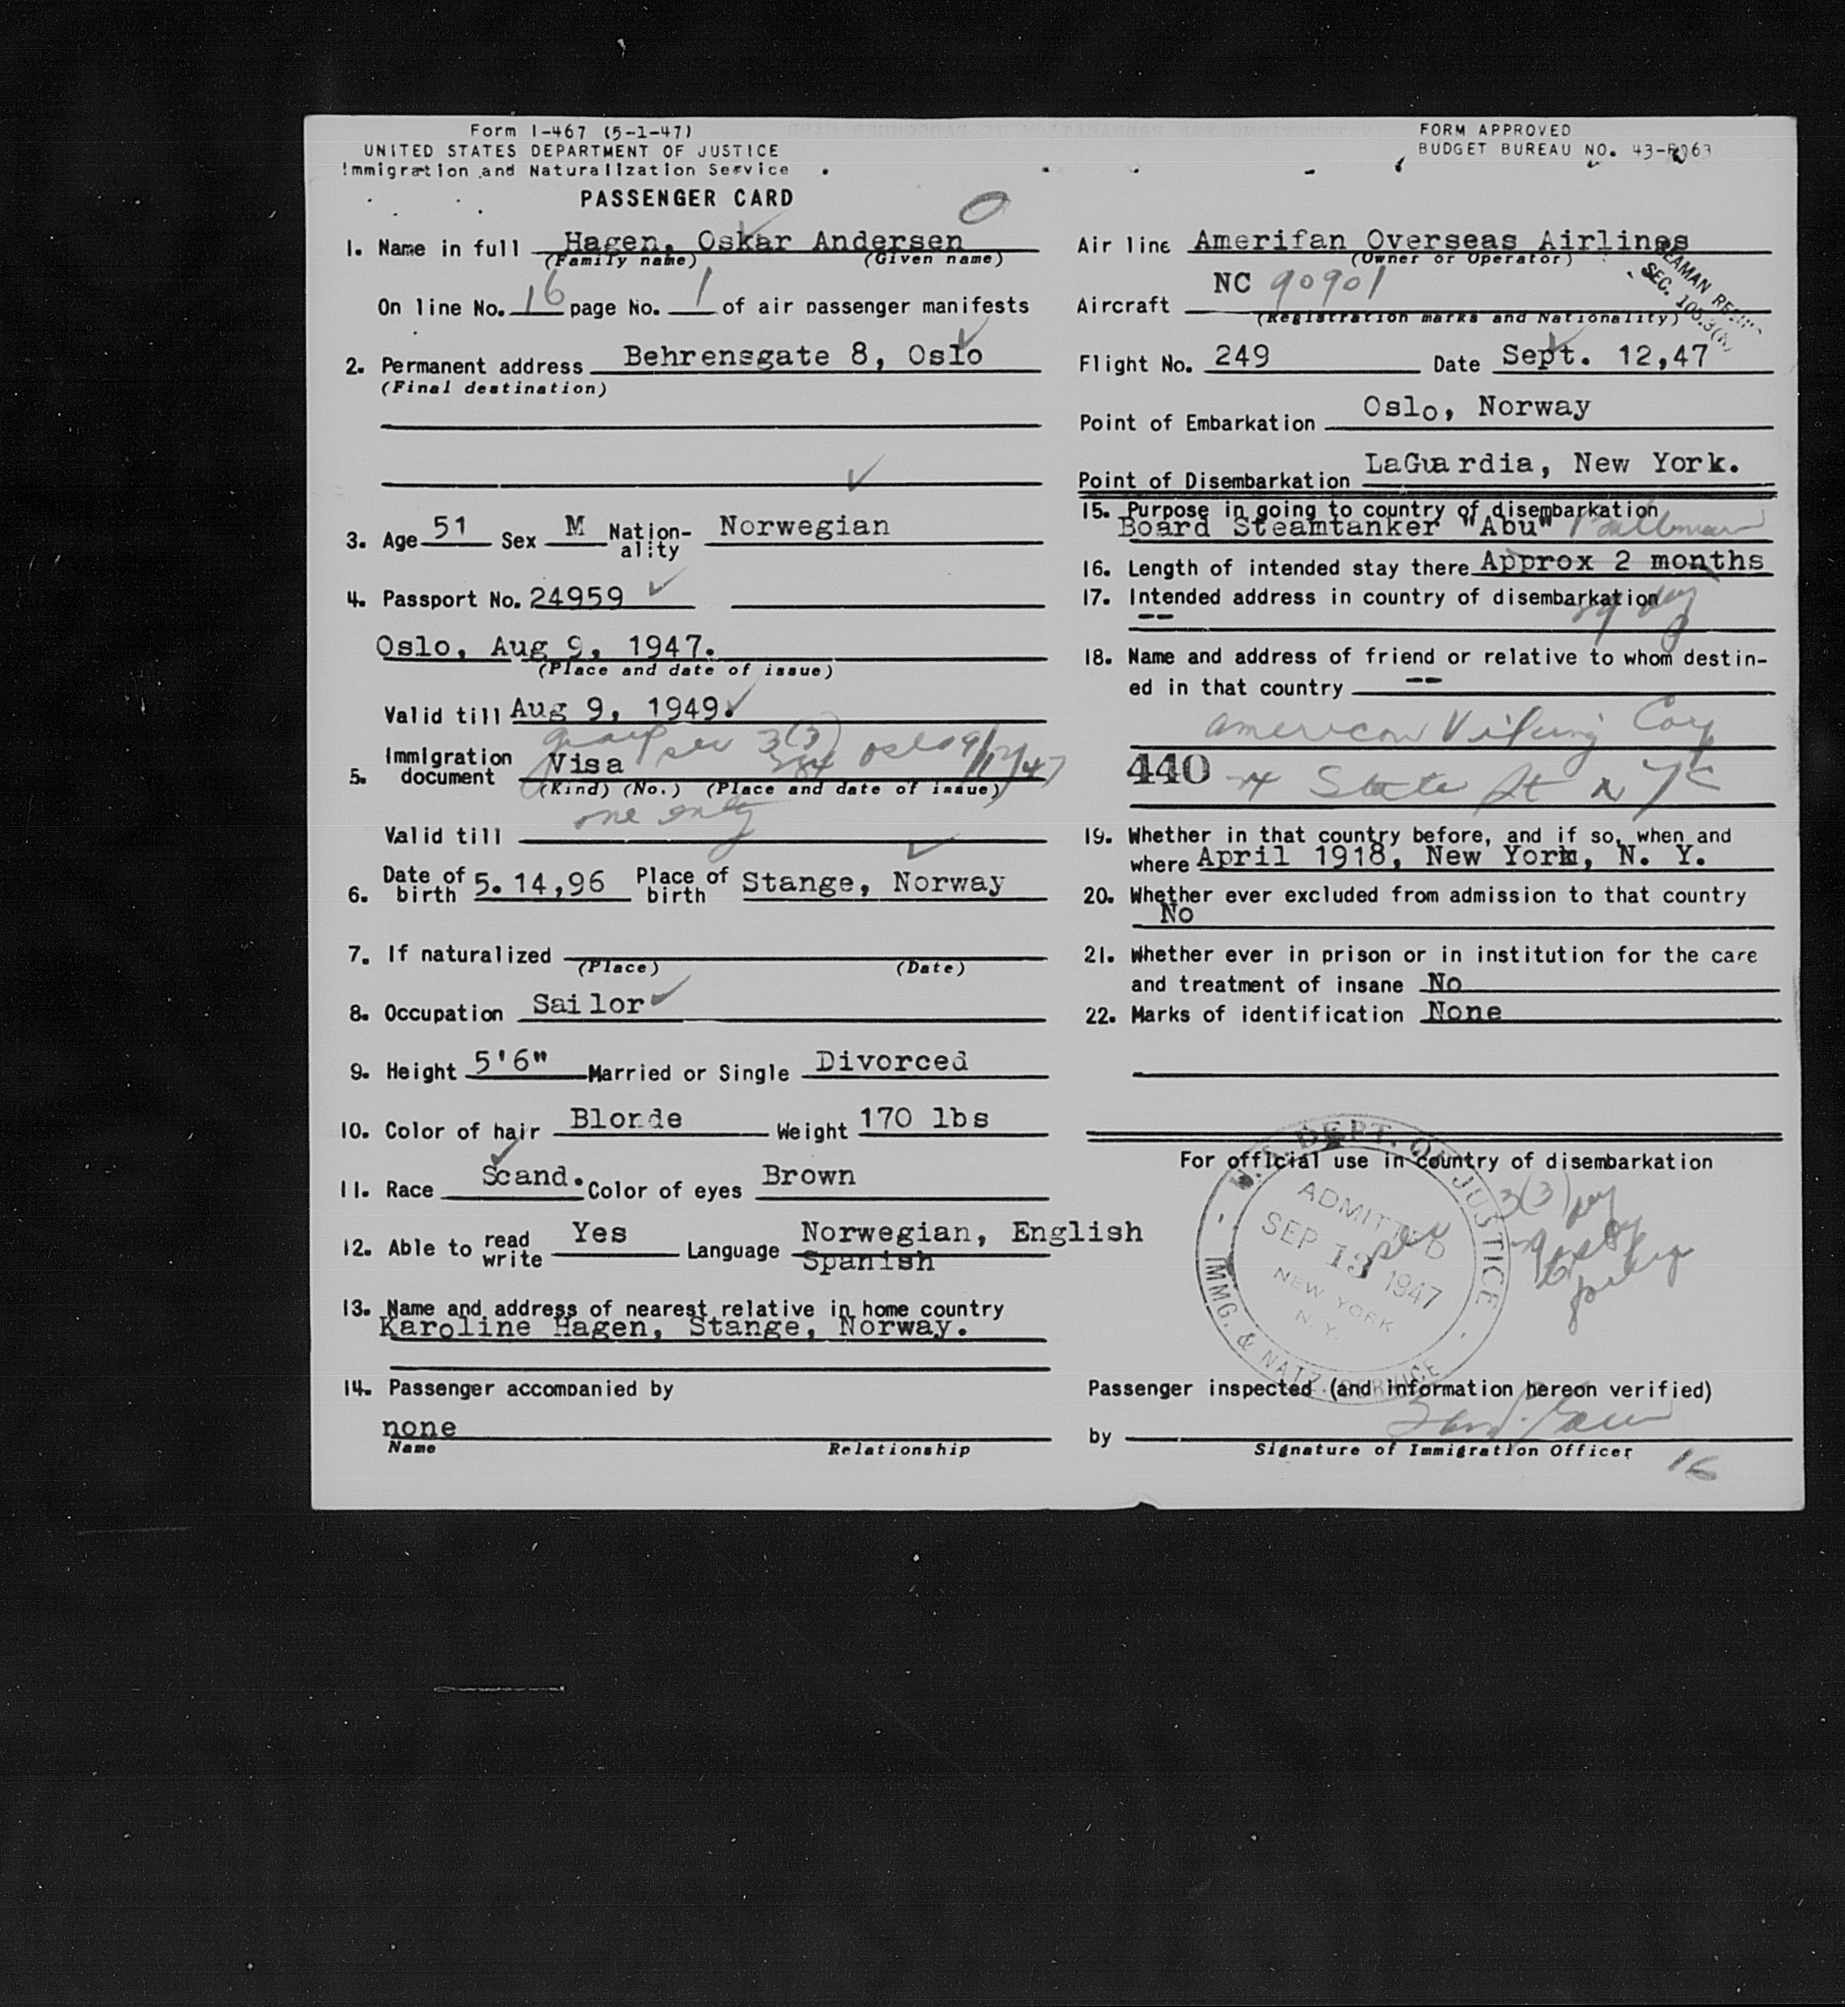 Form I-467 (5-1-47)
UNITED STATES DEPARTMENT OF JUSTICE
Immigration and Naturalization Service
PASSENGER CARD
1. Name in full Hagen, Oskar Andersen
(Family name) (Given name)
On line No. 16 page No. 1 of air passenger manifests
2. Permanent address Behrensgate 8, Oslo
(Final destination)
3. Age 51 Sex M Nation-ality Norwegian
4. Passport No. 24959
Oslo, Aug 9, 1947.
(Place and date of issue)
Valid till Aug 9, 1949.
sec 3(3) Oslo 9/12/47
5. Immigration document Visa
(Kind) (No.) (Place and date of issue)
one entry
Valid till
6. Date of birth 5.14,96 Place of birth Stange, Norway
7. If naturalized
(Place) (Date)
8. Occupation Sailor
9. Height 5'6" Married or Single Divorced
10. Color of hair Blonde Weight 170 lbs
11. Race Scand. Color of eyes Brown
12. Able to read write Yes Language Norwegian, English
Spanish
13. Name and address of nearest relative in home country
Karoline Hagen, Stange, Norway.
14. Passenger accompanied by
none
Name Relationship
FORM APPROVED
BUDGET BUREAU NO. 43-R063
Air line Amerifan Overseas Airlines
(Owner or Operator)
SEAMAN
SEC. 105.3
Aircraft NC 90901
(Registration marks and Nationality)
Flight No. 249 Date Sept. 12,47
Point of Embarkation Oslo, Norway
Point of Disembarkation LaGuardia, New York.
15. Purpose in going to country of disembarkation
Board Steamtanker "Abu"
16. Length of intended stay there Approx 2 months
17. Intended address in country of disembarkation
--
29 day
18. Name and address of friend or relative to whom destin-
ed in that country --
American Viking Corp
440 24 State St N Y C
19. Whether in that country before, and if so, when and
where April 1918, New York, N. Y.
20. Whether ever excluded from admission to that country
No
21. Whether ever in prison or in institution for the care
and treatment of insane No
22. Marks of identification None
For official use in country of disembarkation
U.S. DEPT. OF JUSTICE
ADMITTED
SEP 13 1947
NEW YORK
N. Y.
IMMG. & NATZ. SERVICE
3(3)
Passenger inspected (and information hereon verified)
by
Signature of Immigration Officer
16